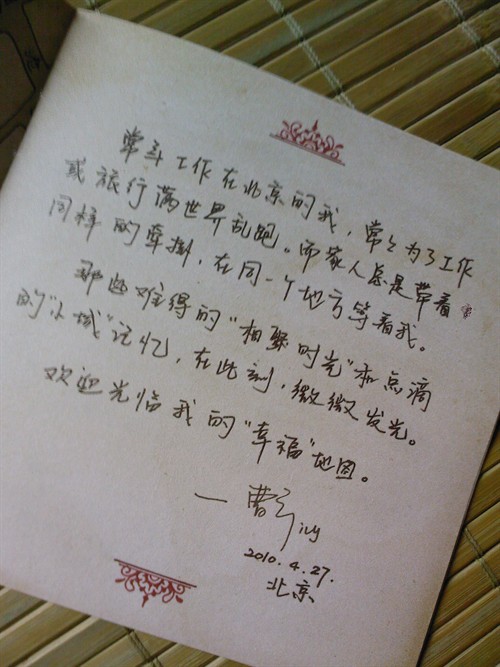 常年工作在北京的我，常々为了工作
或旅行满世界乱跑。而家人总是带着
同样的牵挂，在同一个地方等着我。
那些难得的“相聚时光”和点滴
的“小城”记忆，在此刻，微微发光。
欢迎光临我的“幸福”地图。
一曹 ivy
2010.4.27.
北京